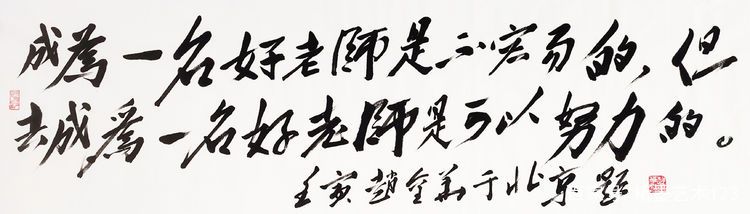 成為一名好老師是不容易的,但
去成為一名好老師是可以努力的。
壬寅趙全義于北京題